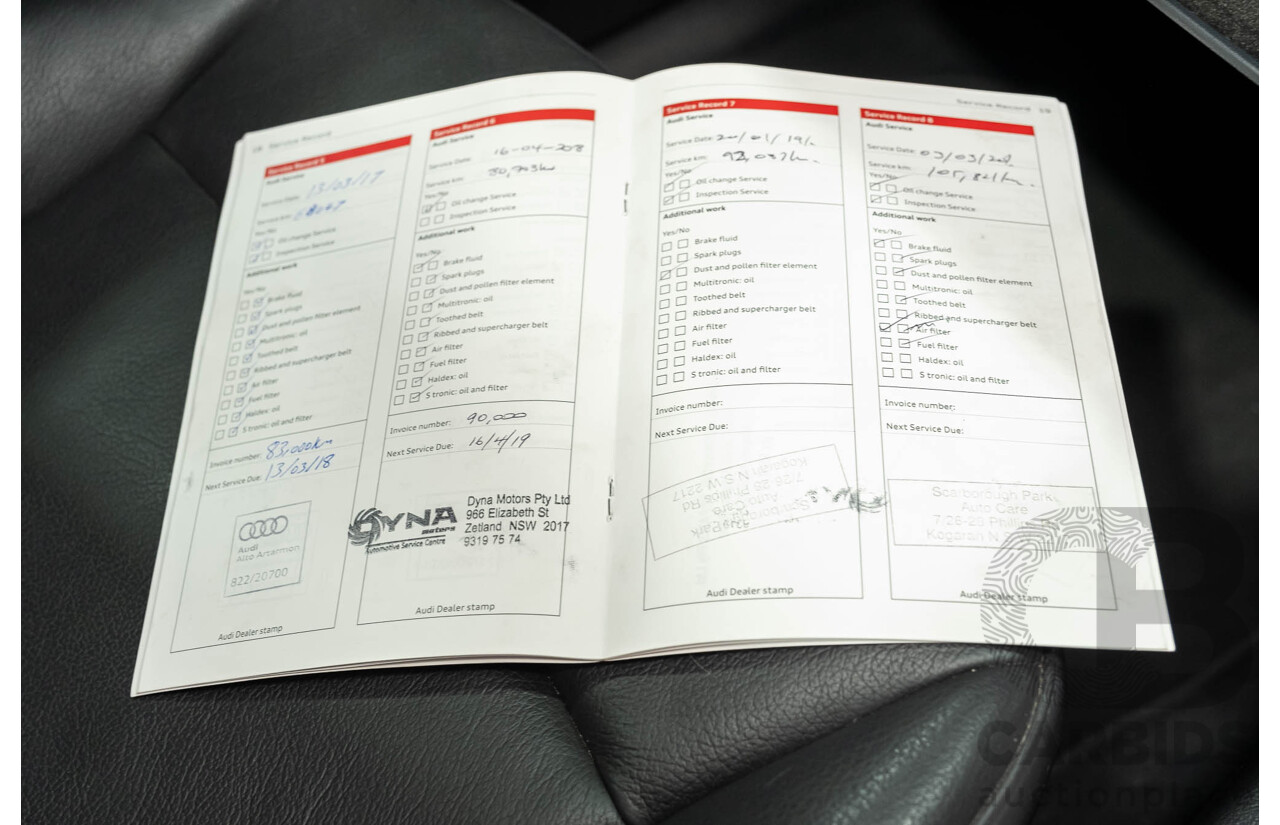 18 Service Record
Service Record 5
Audi Service
Service Date: 13/03/17
Service km:
Yes/No
Oil change Service
Inspection Service
Additional work
Yes/No
Brake fluid
Spark plugs
Dust and pollen filter element
Multitronic: oil
Toothed belt
Ribbed and supercharger belt
Air filter
Fuel filter
Haldex: oil
S tronic: oil and filter
Invoice number: 83,000km
Next Service Due: 13/03/18
Audi
Alto Artarmon
822/20700
Audi Dealer stamp
Service Record 6
Audi Service
Service Date: 16-04-2018
Service km:
Yes/No
Oil change Service
Inspection Service
Additional work
Yes/No
Brake fluid
Spark plugs
Dust and pollen filter element
Multitronic: oil
Toothed belt
Ribbed and supercharger belt
Air filter
Fuel filter
Haldex: oil
S tronic: oil and filter
Invoice number: 90,000
Next Service Due: 16/4/19
DYNA
motors
Automotive Service Centre
Dyna Motors Pty Ltd
966 Elizabeth St
Zetland NSW 2017
9319 75 74
Audi Dealer stamp
Service Record 7
Audi Service
Service Date:
Service km: 92,037km.
Yes/No
Oil change Service
Inspection Service
Additional work
Yes/No
Brake fluid
Spark plugs
Dust and pollen filter element
Multitronic: oil
Toothed belt
Ribbed and supercharger belt
Air filter
Fuel filter
Haldex: oil
S tronic: oil and filter
Invoice number:
Next Service Due:
Kogarah N.S.W 2217
7/26-29 Phillips Rd
Auto Care
Audi Dealer stamp
Service Record 19
Service Record 8
Audi Service
Service Date: 03/03/20.
Service km:
Yes/No
Oil change Service
Inspection Service
Additional work
Yes/No
Brake fluid
Spark plugs
Dust and pollen filter element
Multitronic: oil
Toothed belt
Ribbed and supercharger belt
Air filter
Fuel filter
Haldex: oil
S tronic: oil and filter
Invoice number:
Next Service Due:
Scarborough Park
Auto Care
7/26-29
Kogarah N.
Audi Dealer stamp
CARBIDS